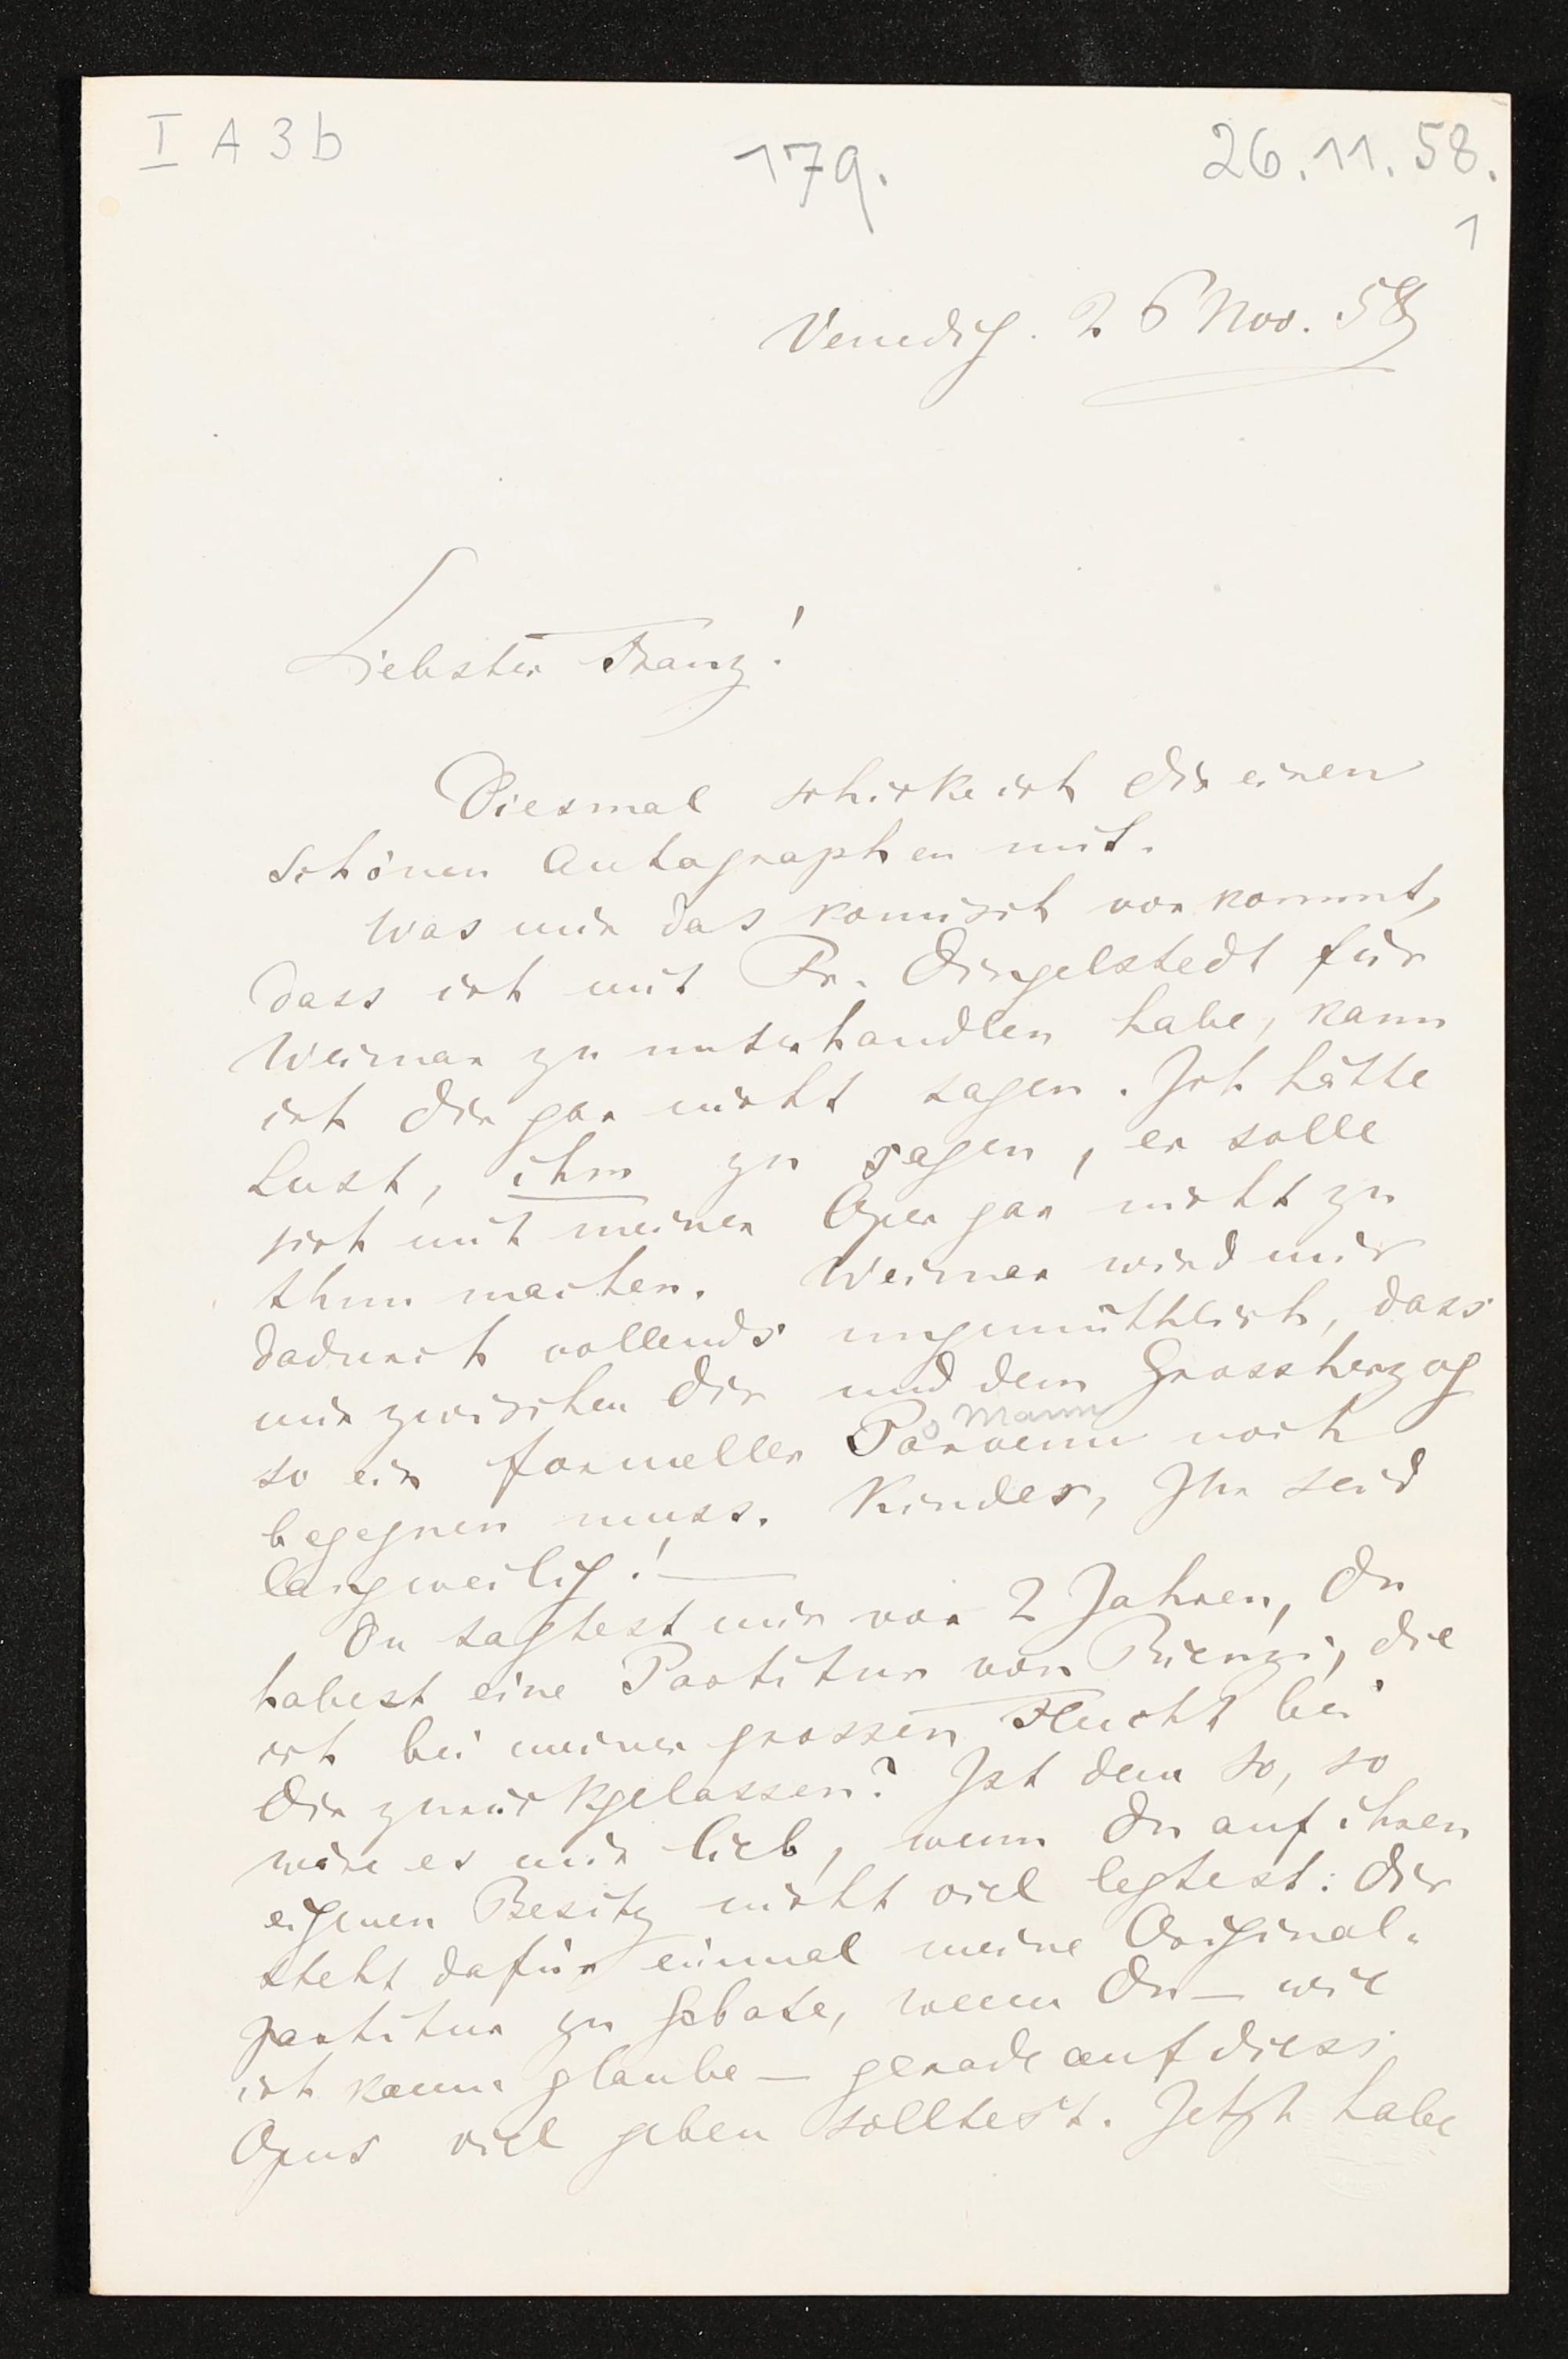 I A 3 b
179.
26.11.58.
1
Venedig. 26 Nov. 58
Liebster Franz!
Diesmal schicke ich dir einen
schönen Autographen mit.
Was mir das komisch vorkommt,
dass ich mit Fr. Dingelstedt für
Weimar zu unterhandlen habe, kann
ich Dir gar nicht sagen. Ich hätte
Lust, ihm zu sagen, er solle
sich mit meiner Oper gar nicht zu
thun machen. Weimar wird mir
dadurch vollends ungemüthlich, dass
mir zwischen Dir und dem Grossherzog
Mann
so ein formeller Parvenu noch
begegnen muss. Kinder, Ihr seid
langweilig! —
Du sagtest mir vor 2 Jahren, Du
habest eine Partitur von Rienzi, die
ich bei meiner grossen Flucht bei
Dir zurückgelassen? Ist dem so, so
wäre es mir lieb, wenn Du auf ihren
eigenen Besitz nicht viel legtest: Dir
steht dafür einmal meine Original-
partitur zu Gebote, wenn Du — wie
ich kaum glaube — gerade auf diess
Opus viel geben solltest. Jetzt habe